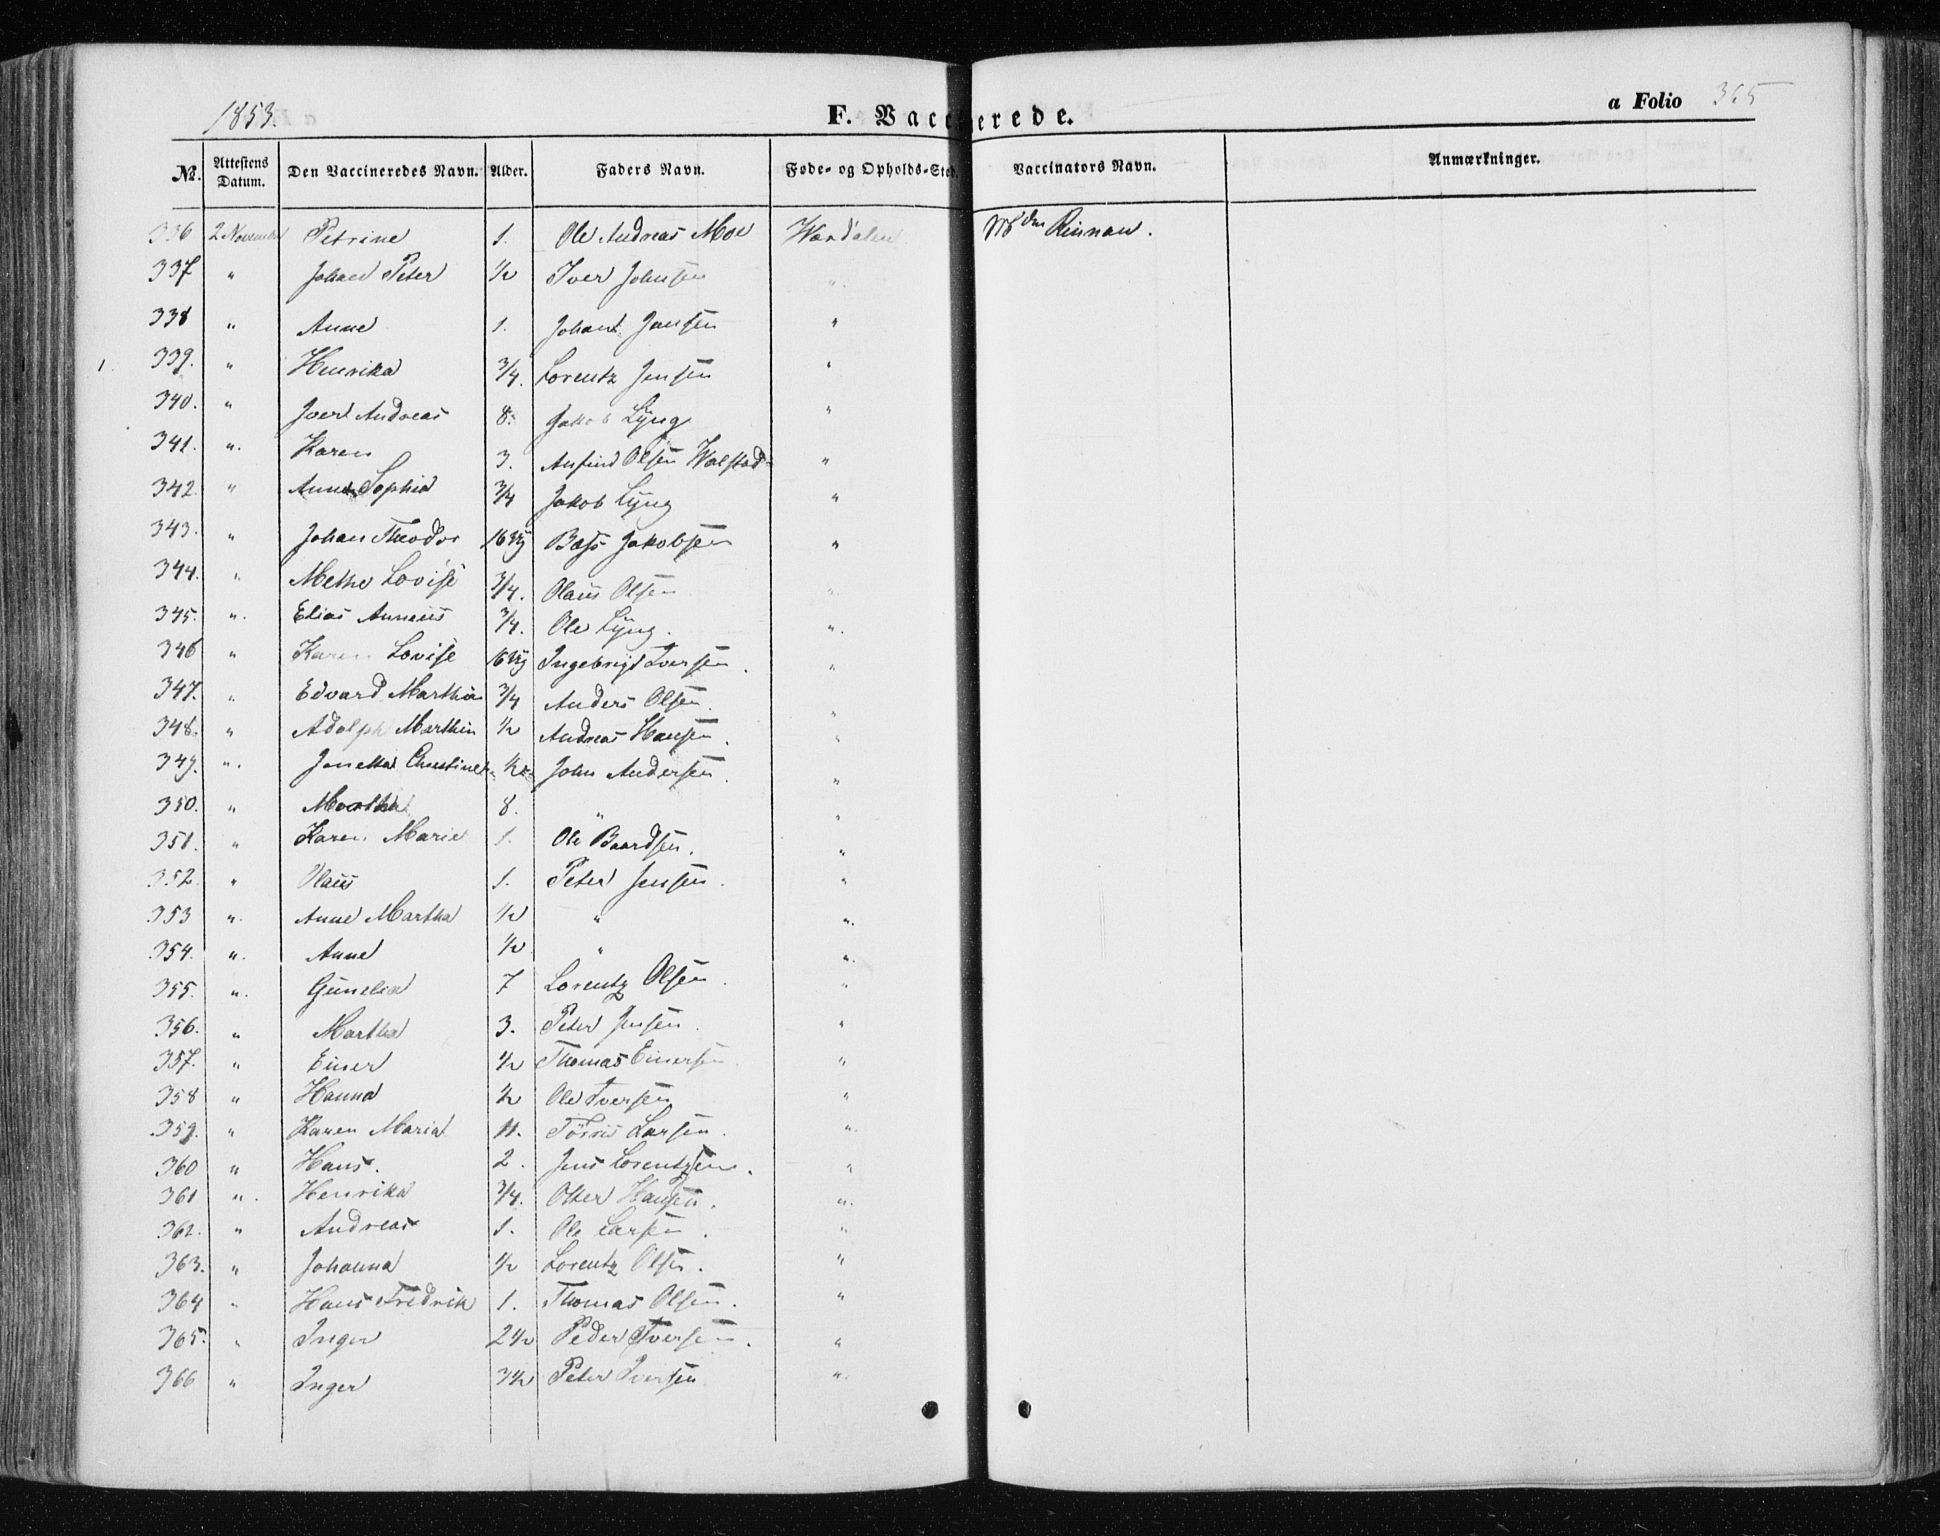 1853. F. Vaccinerede. a Folio 365
No. Attestens Datum. Den Vaccineredes Navn. Alder. Faders Navn. Føde- og Opholds-Sted. Vaccinators Navn. Anmærkninger.
336 2 November Petrine 1. Ole Andreas Moe Værdalen Rinnan.
337 " Johan Peter 1/2 Iver Johnsen "
338 " Anne 1. Johan Jansen "
339. " Henrika 3/4. Lorentz Jensen "
340. " Iver Andreas 8. Jakob Lÿng "
341. " Karen 3. Anfind Olsen Walstad "
342. " Anne Sophia 3/4 Jakob Lÿng "
343. " Johan Theodor 16 Baÿs Jakobsen "
344. " Methe Lovise 3/4. Olaus Olsen "
345. " Elias Anneus 3/4. Ole Lÿng. "
346 " Karen Lovise 16 Ingebrigt Iversen. "
347. " Edvard Marthin 3/4 Anders Olsen. "
348. " Adolph Marthin 1/2 Andreas Hansen. "
349. " Jonetta Christine 1/2 John Andersen. "
350. " Martha 8. " "
351. " Karen Marie 1. Ole Baardsen. "
352. " Olaus 1. Peter Jensen. "
353 " Anne Martha 1/2 " "
354. " Anne 1/2 " "
355. " Gunelia 7 Lorentz Olsen. "
356. " Martha 3. Peter Jensen. "
357. " Einer 1/2 Thomas Einersen "
358 " Hanna 1/2 Ole Iversen "
359. " Karen Maria 11. Törris Larsen. "
360 " Hans. 2. Jens Lorentzsen. "
361 " Henrika 3/4. Otter Hansen. "
362. " Andreas 1. Ole Larsen. "
363. " Johanna 1/2 Lorentz Olsen. "
364 " Hans Fredrik 1. Thomas Olsen. "
365. " Inger 2 1/2 Peder Iversen. "
366 " Inger 3 1/2 Peter Iversen "